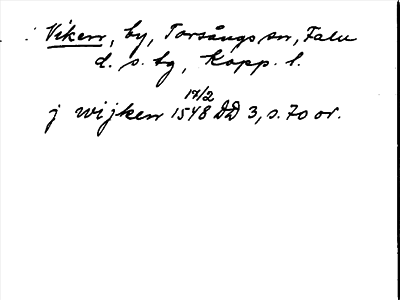 Viken, by, Torsångs sn, Falu
d. s. bg, Kopp. l.
17/2
j wijken 1548 DD 3, s. 70 or.